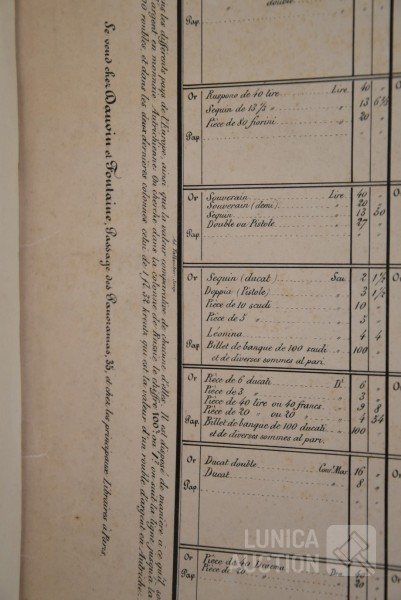 double
Pap.
Or Ruspone de 40 lire Lire. 40 "
Sequin de 13½ " 13 6⅔
Pièce de 80 fiorini " 20 "
Pap.
Or Souverain Lire. 40 "
Souverain (demi) " 20 "
Sequin " 13 50
Double ou Pistole " 27 "
Pap.
Or Sequin (ducat) Scu. 2 1½
Doppia (Pistole) " 3 1½
Pièce de 10 scudi " 10 "
Pièce de 5 "
Léonina " 4 4
Pap. Billet de banque de 100 scudi " 100
et de diverses sommes al pari.
Or Pièce de 6 ducati D! 6 "
Pièce de 3 " " 3 "
Pièce de 40 lire ou 40 francs " 9 8
Pièce de 20 " ou 20 " " 4 54
Pap. Billet de banque de 100 ducati " 100
et de diverses sommes al pari.
Or Ducat double 16 "
Ducat " 8 "
Pap.
Or Pièce de 40
Pap. 20
les différents pays de l'Europe, ainsi que la valeur comparative de chacune d'elles. Il est disposé de manière à ce qu'il
argent en monnaie Autrichienne. On cherche dans la colonne de Russie le chiffre 100
roubles, et dans les deux dernières colonnes celui de 1 fl. 32 kreutz qui est la valeur d'un rouble d'argent en Autriche.
Se vend chez Dauvin et Fontaine, Passage des Panoramas, 35, et chez les principaux Libraires à Paris.
LUNICA
AUCTION